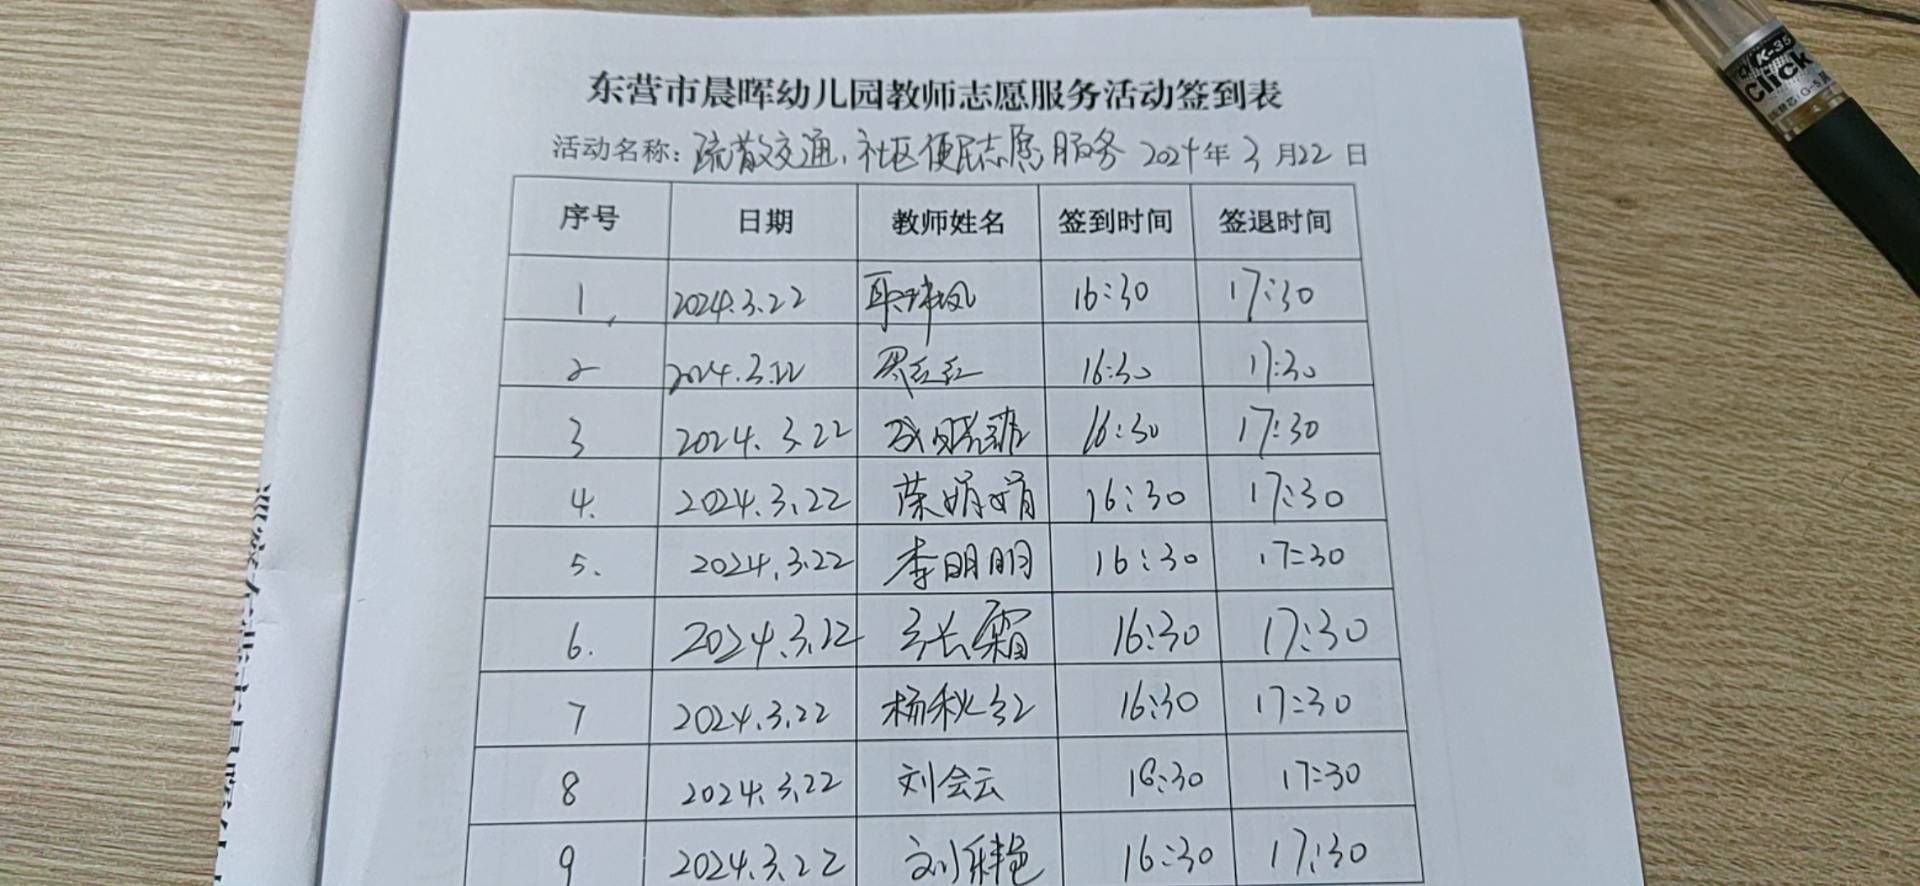 东营市晨晖幼儿园教师志愿服务活动签到表
活动名称：疏散交通、社区便民志愿服务 2024年3月22日
序号 日期 教师姓名 签到时间 签退时间
1 2024.3.22 16:30 17:30
2 2024.3.22 16:30 17:30
3 2024.3.22 16:30 17:30
4. 2024.3.22 荣娟娟 16:30 17:30
5. 2024.3.22 李明明 16:30 17:30
6. 2024.3.22 16:30 17:30
7 2024.3.22 杨秋红 16:30 17:30
8 2024.3.22 刘会云 16:30 17:30
9 2024.3.22 16:30 17:30
K-35
Click